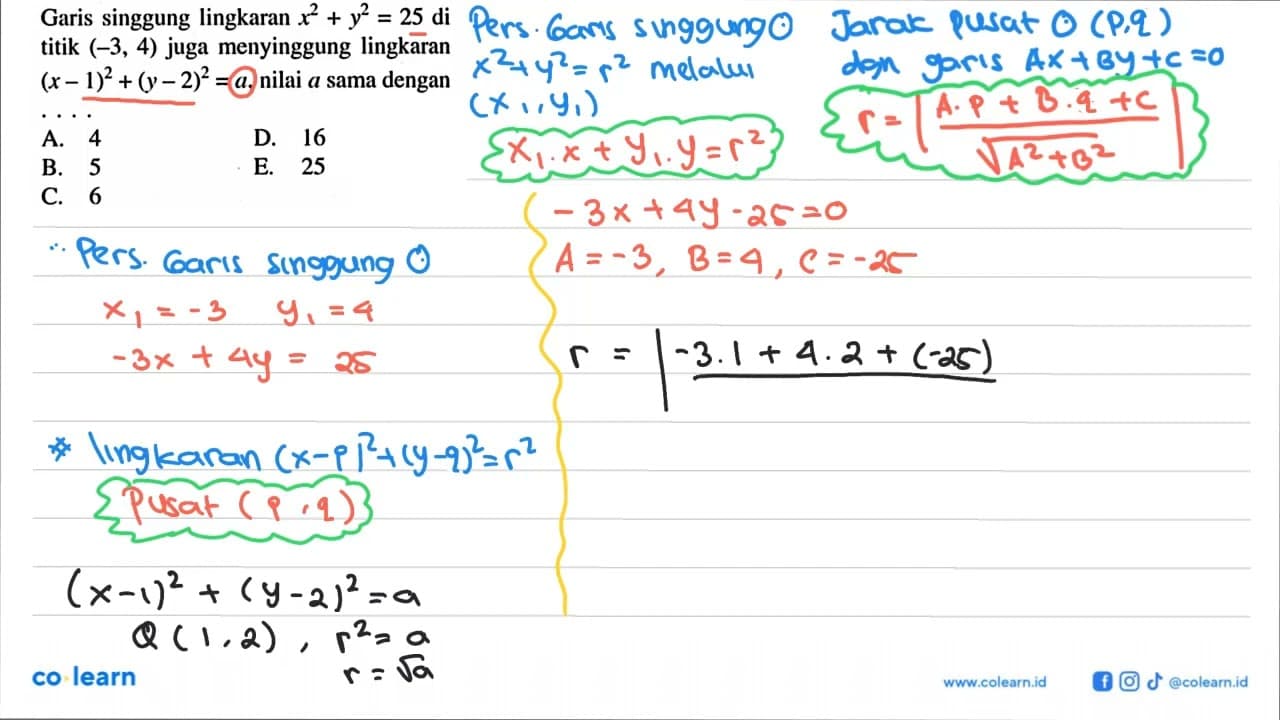 Garis singgung lingkaran x² + y² = 25 di
titik (–3, 4) juga menyinggung lingkaran
(x – 1)² + (y – 2)² = a, nilai a sama dengan
. . . .
A. 4
B. 5
C. 6
D. 16
E. 25
Pers. Garis singgung O
x² + y² = r² melalui
(x₁, y₁)
x₁.x + y₁.y = r²
Jarak pusat O (P,q)
dgn garis Ax + By + C = 0
r = | A.p + B.q + C / √A² + B² |
∵ Pers. Garis singgung O
x₁ = -3 y₁ = 4
-3x + 4y = 25
* lingkaran (x-p)² + (y-q)² = r²
Pusat (p, q)
(x-1)² + (y-2)² = a
Q (1, 2), r² = a
r = √a
-3x + 4y - 25 = 0
A = -3, B = 4, C = -25
r = | -3.1 + 4.2 + (-25)
co learn
www.colearn.id
@colearn.id